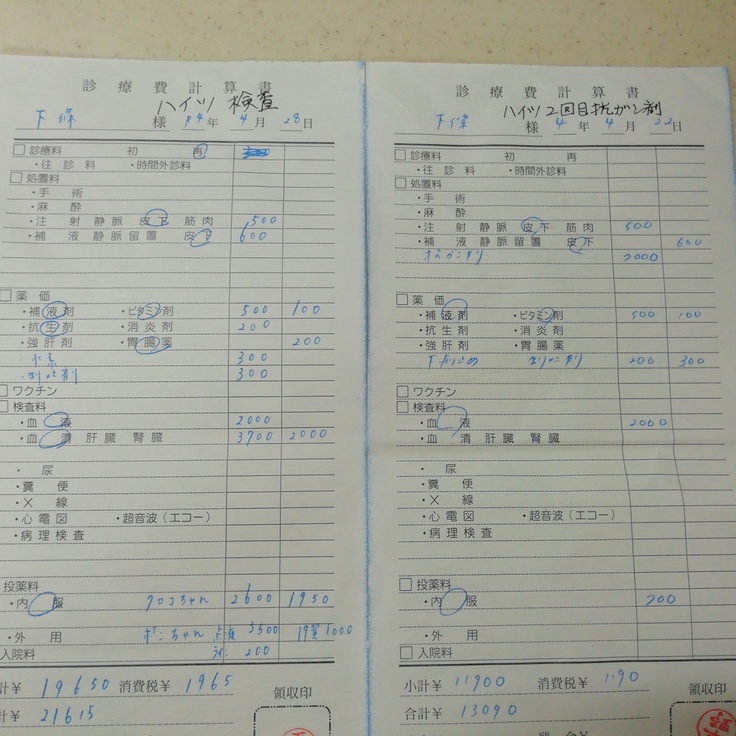 診療費計算書
ハイツ 検査
下條 様 R4年 4月 28日
診療料 初 再
・往診料 ・時間外診料
処置料
・手術
・麻酔
・注射 静脈 皮下 筋肉 500
・補液 静脈留置 皮下 600
薬価
・補液剤 ・ビタミン剤 500 100
・抗生剤 ・消炎剤 200
・強肝剤 ・胃腸薬 200
300
制吐剤 300
ワクチン
検査料
・血液 2000
・血清 肝臓 腎臓 3700 2000
・尿
・糞便
・X線
・心電図 ・超音波(エコー)
・病理検査
投薬料
・内服 クロコちゃん 2600 1950
・外用 ちゃん 点眼 3500 1000
入院料 200
計¥ 19650 消費税¥ 1965
計¥ 21615
領収印
診療費計算書
ハイツ2回目抗ガン剤
下條 様 4年 4月 22日
診療料 初 再
・往診料 ・時間外診料
処置料
・手術
・麻酔
・注射 静脈 皮下 筋肉 500
・補液 静脈留置 皮下 600
抗がんざい 2000
薬価
・補液剤 ・ビタミン剤 500 100
・抗生剤 ・消炎剤
・強肝剤 ・胃腸薬
下痢止め 200 300
ワクチン
検査料
・血液 2000
・血清 肝臓 腎臓
・尿
・糞便
・X線
・心電図 ・超音波(エコー)
・病理検査
投薬料
・内服
・外用
入院料
小計¥ 11900 消費税¥ 1190
合計¥ 13090
領収印